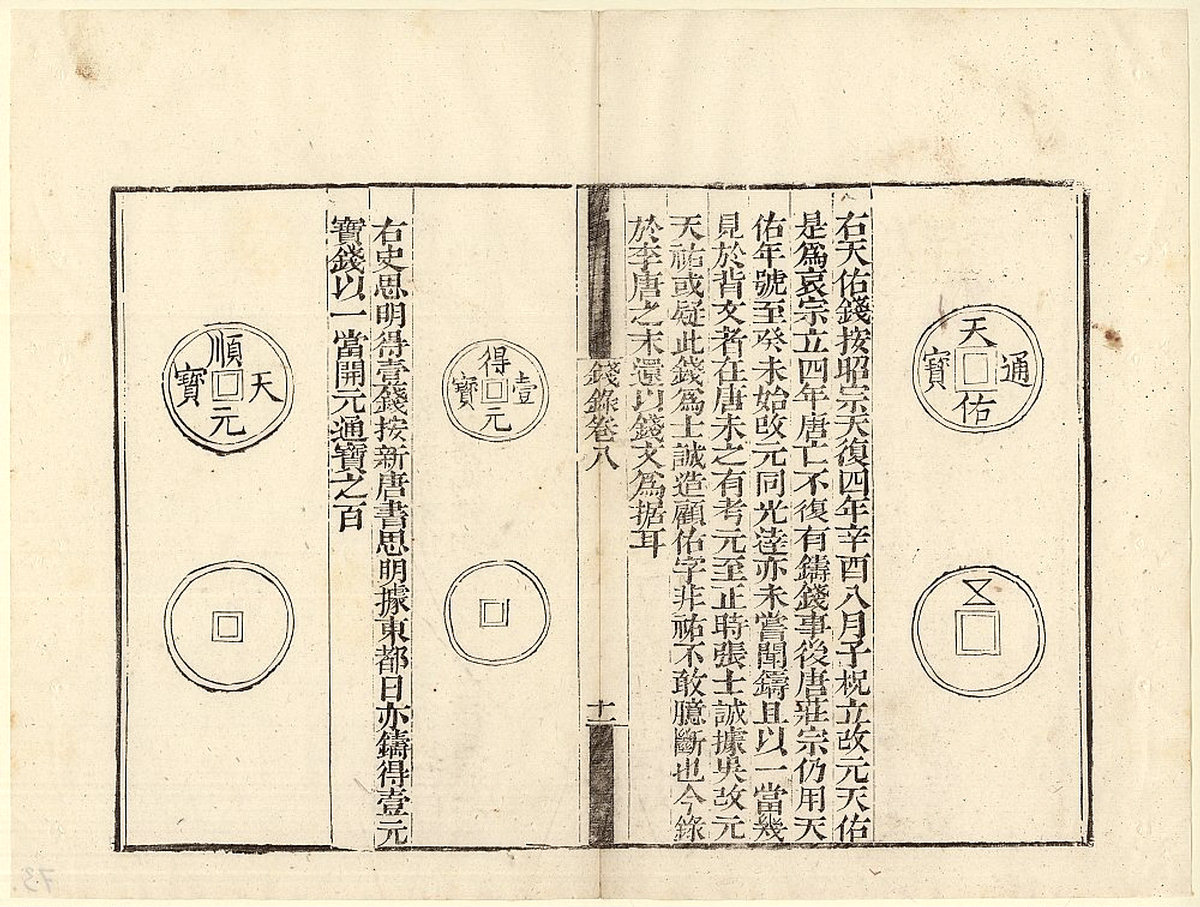 天佑通寶
右天佑錢按昭宗天復四年辛酉八月子柷立改元天佑
是爲哀宗立四年唐亡不復有鑄錢事後唐莊宗仍用天
佑年號至癸未始改元同光逵亦未嘗聞鑄且以一當幾
見於背文者在唐未之有考元至正時張士誠據吳改元
天祐或疑此錢爲士誠造顧佑字非祐不敢臆斷也今錄
於李唐之末還以錢文爲据耳
錢錄卷八
十一
得壹元寶
右史思明得壹錢按新唐書思明據東都日亦鑄得壹元
寶錢以一當開元通寶之百
順天元寶